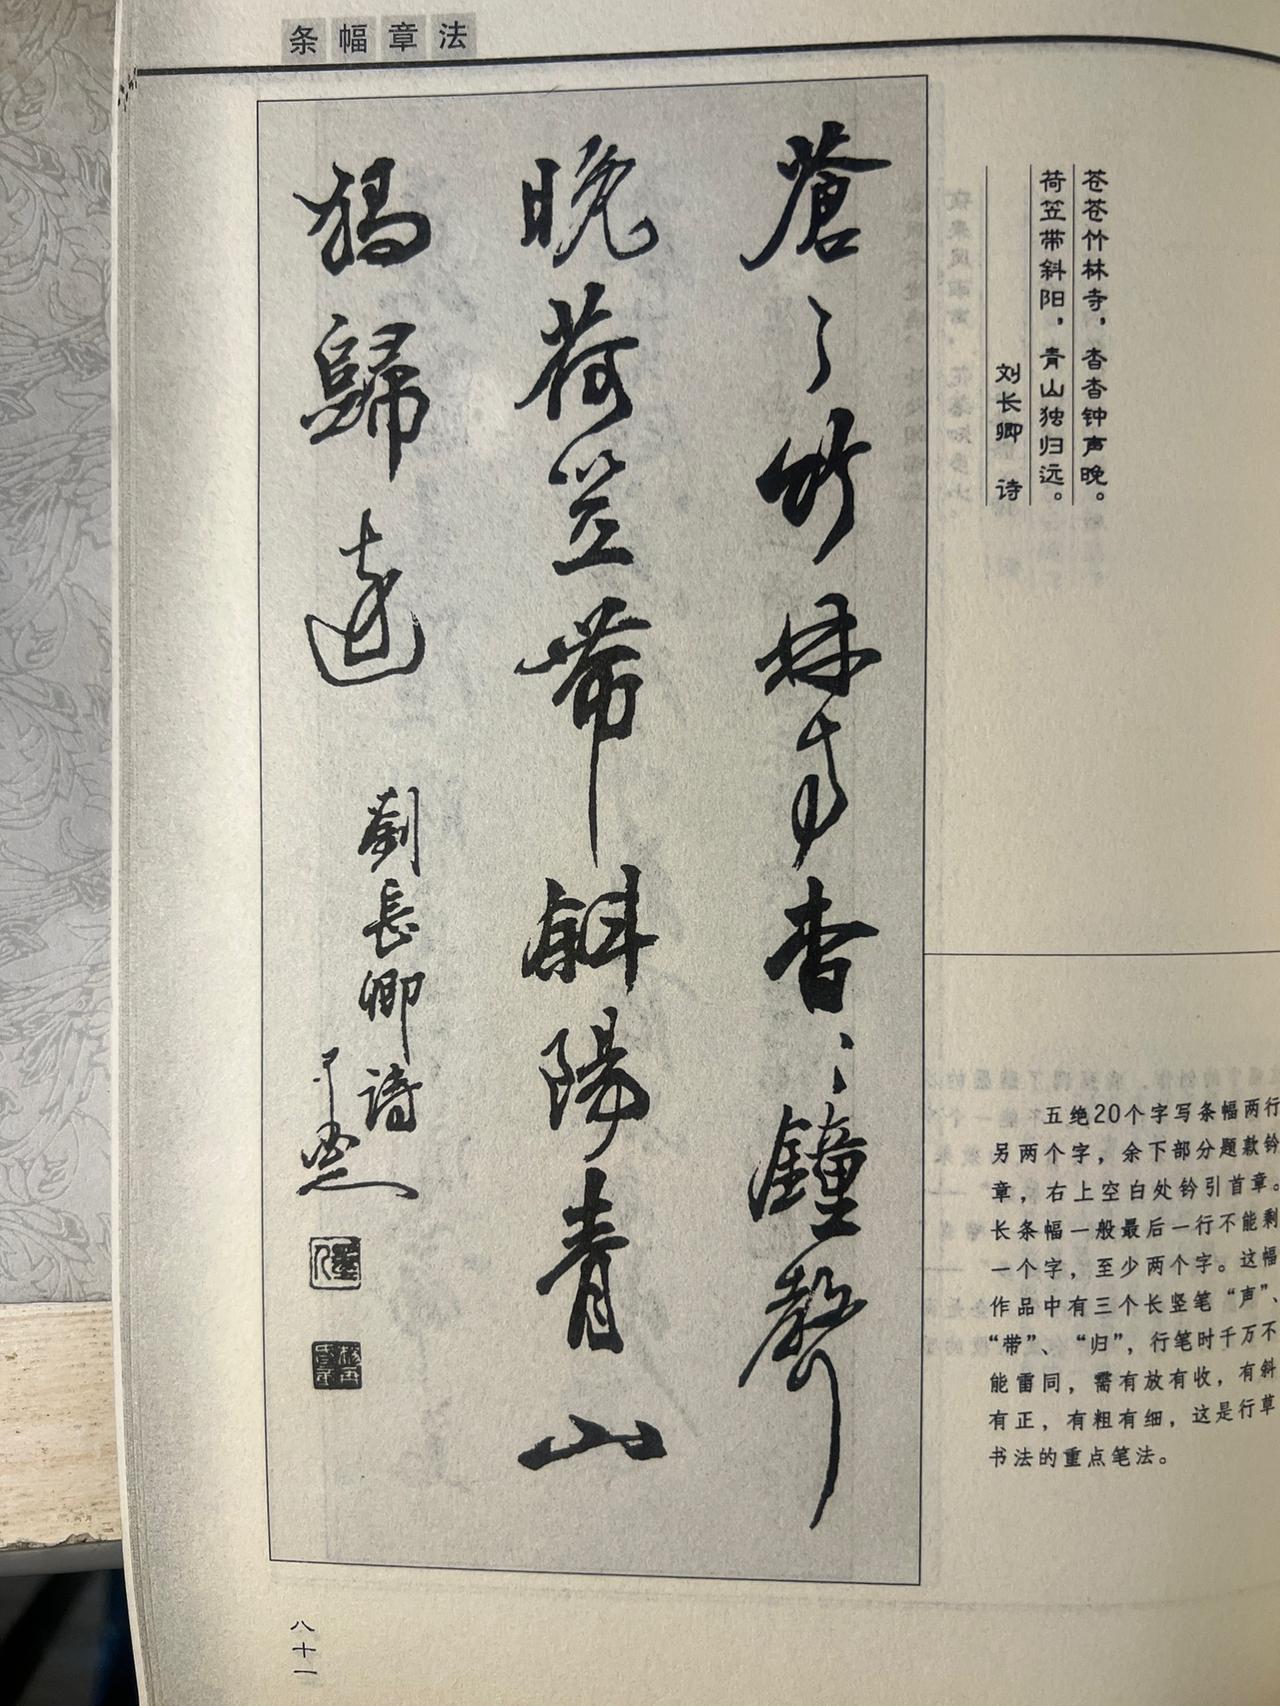 条幅章法
蒼々竹林寺杳々鐘聲
晚荷笠帶斜陽青山
獨歸遠
劉長卿詩
苍苍竹林寺，杳杳钟声晚。
荷笠带斜阳，青山独归远。
刘长卿 诗
五绝20个字写条幅两行
另两个字，余下部分题款钤
章，右上空白处钤引首章。
长条幅一般最后一行不能剩
一个字，至少两个字。这幅
作品中有三个长竖笔“声”、
“带”、“归”，行笔时千万不
能雷同，需有放有收，有斜
有正，有粗有细，这是行草
书法的重点笔法。
八十一